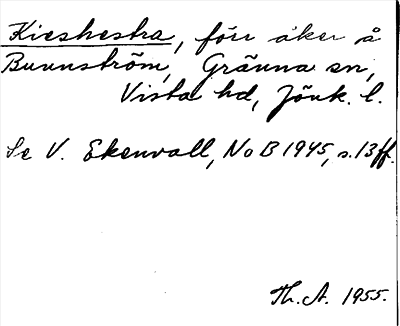 Kieshestra, förr åker å
Bunnström, Gränna sn,
Vista hd, Jönk. l.
Se V. Ekenvall, NoB 1945, s. 13 ff.
Th. A. 1955.